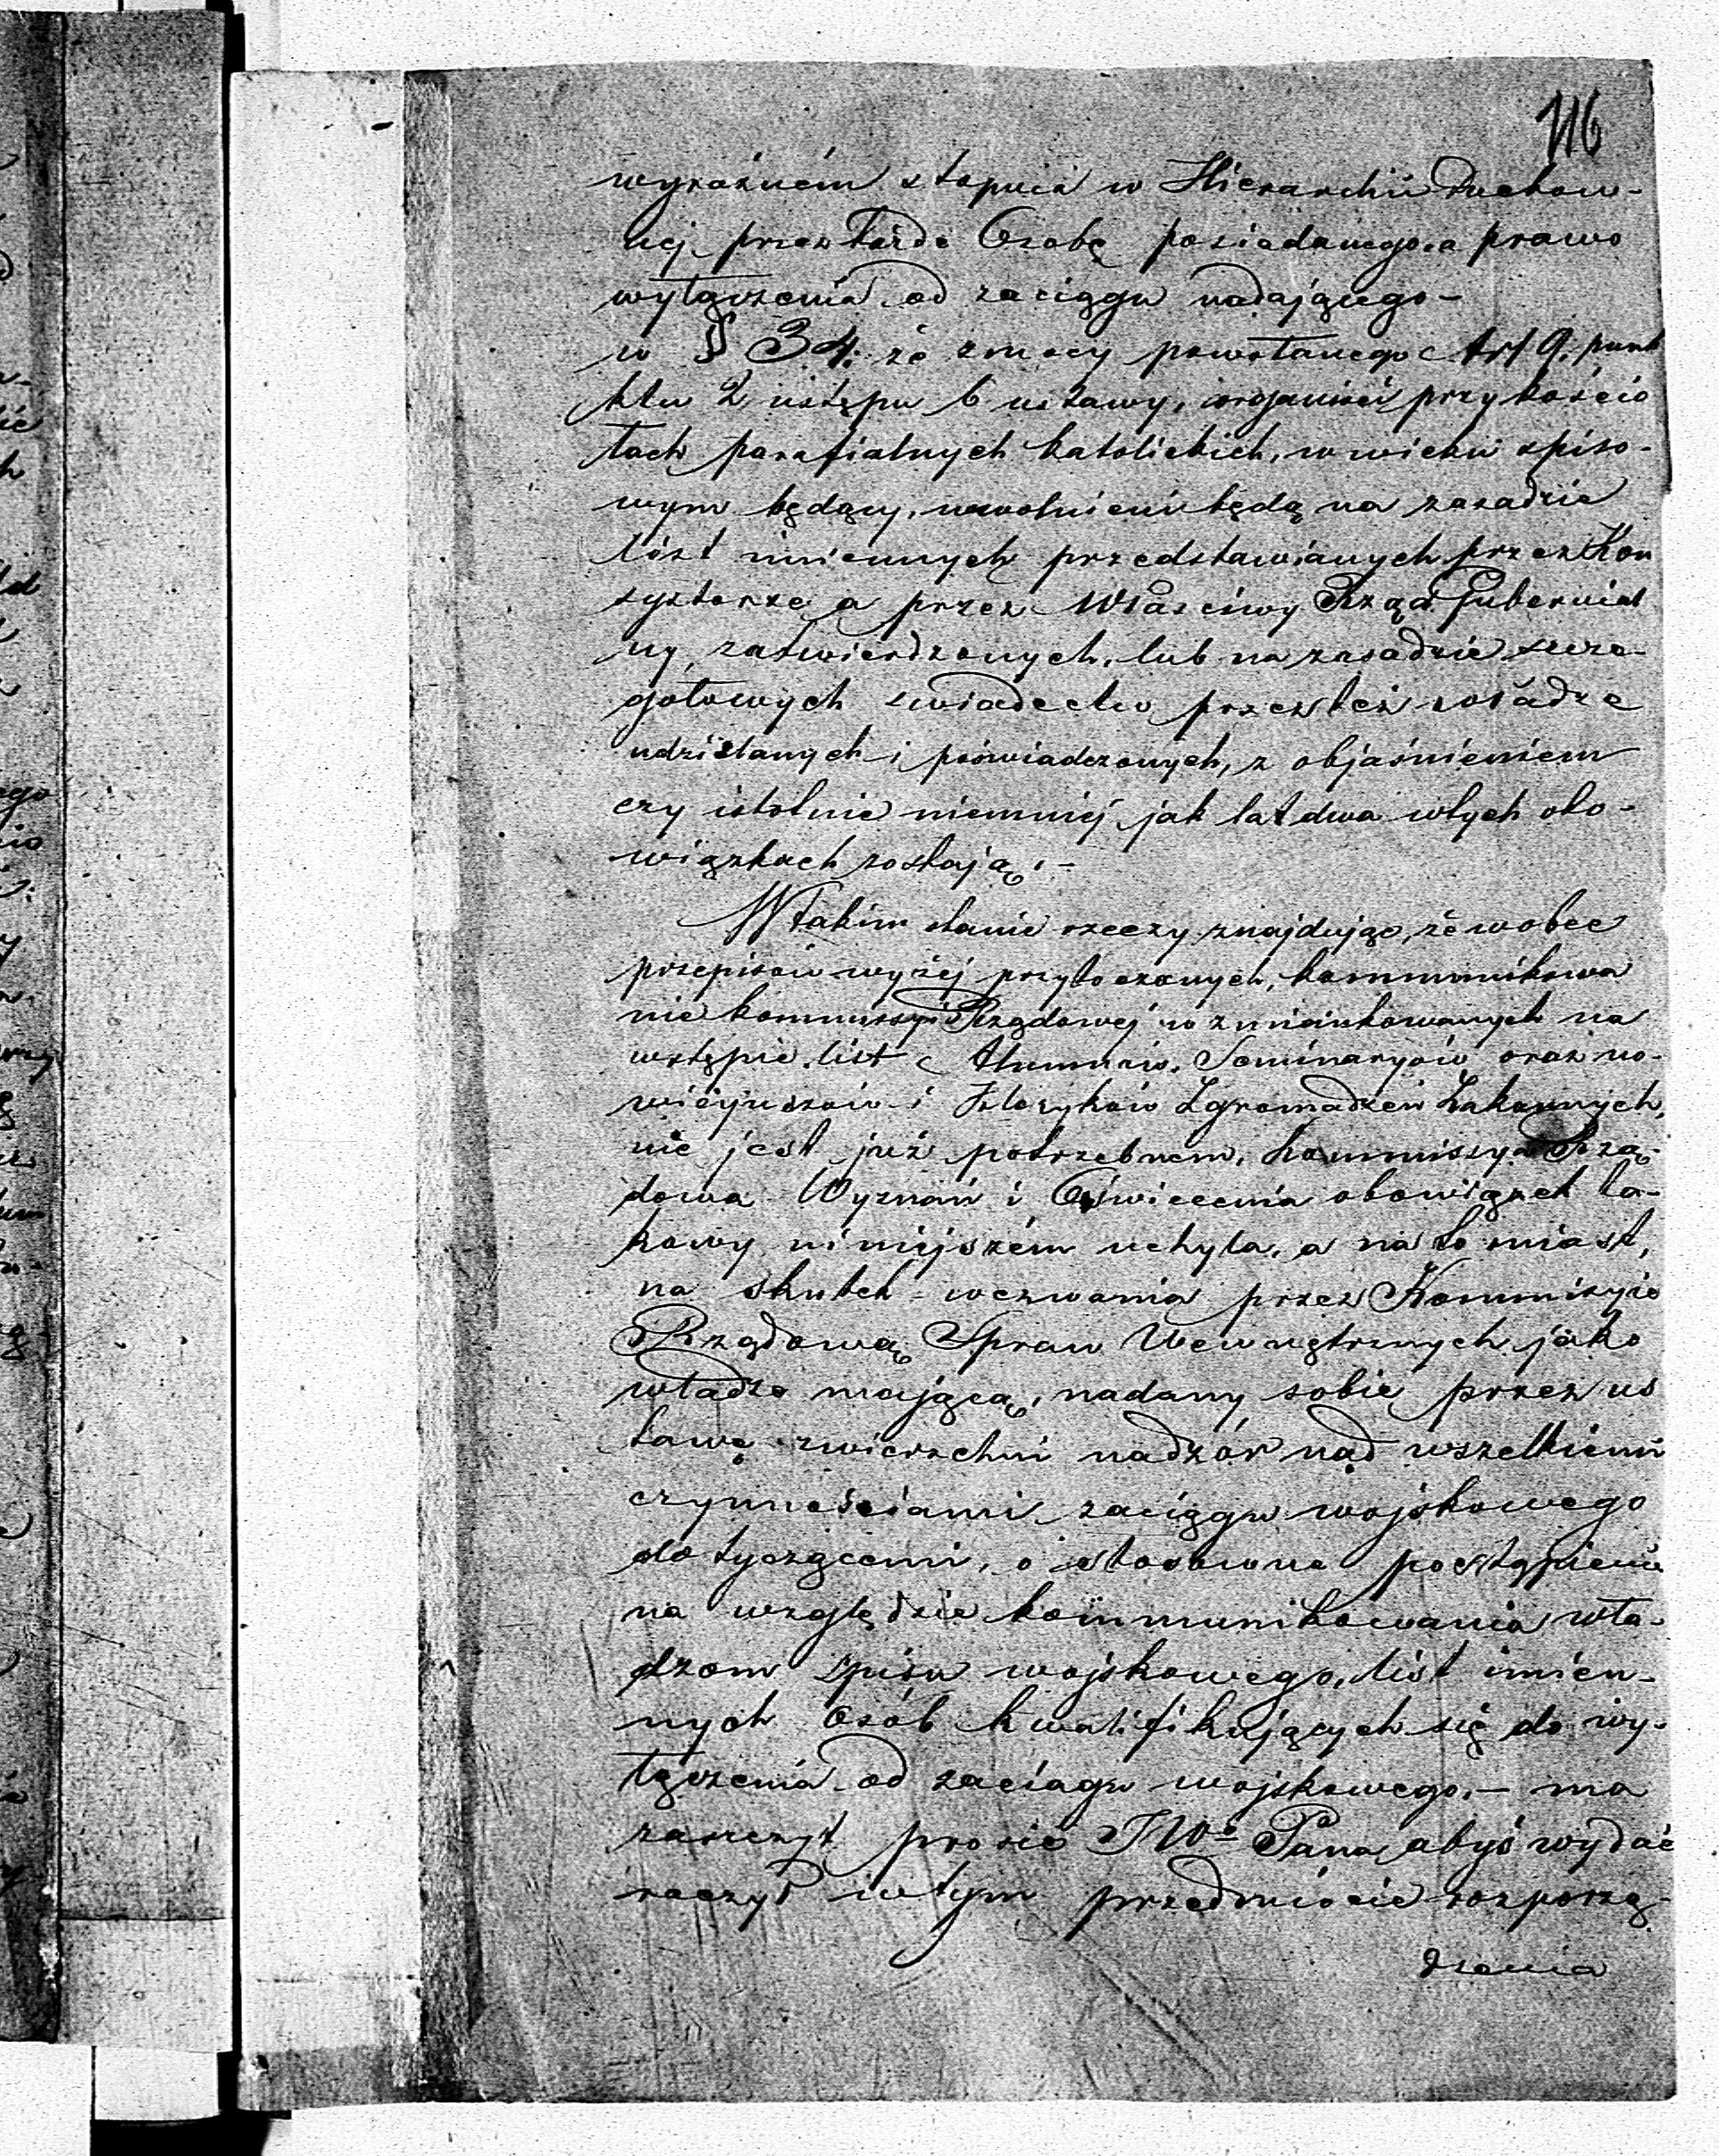 116
wyraźném stopnia w Hierarchii Duchow-
nej przez każdę Osobę posiadanego, a prawo
wyłączenia od zaciągu nadającego —
w § 34. że z mocy powołanego Art 9. punk
ktu 2 ustępu 6 ustawy, organiści przy kościo
łach parafialnych katolickich, w wieku spiso-
wym będący, uwolnieni będą na zasadzie
list imiennych przedstawianych przez Kon
systorze a przez Właściwy Rząd Gubernial
ny zatwierdzonych, lub na zasadzie szcze-
gółowych świadectw przez też władze
udzielanych i poświadczonych, z objaśnieniem
czy istotnie niemniej jak lat dwa w tych obo-
wiązkach zostają. —
W takim stanie rzeczy znajdując, że wobec
przepisów wyżej przytoczonych, kommunikowa
nie kommissyi Rządowej wzmiankowanych na
wstępie list Alumnów Seminaryów oraz no-
wicyuszów i Kleryków Zgromadzeń Zakonnych,
nie jest już potrzebnem, Kommissya Rzą-
dowa Wyznań i Oświecenia obowiązek ta-
kowy niniejszém uchyla, a natomiast,
na skutek wezwania przez Kommisyię
Rządową Spraw Wewnętrznych jako
władzę mającą, nadany sobie przez us
tawę zwierzchni nadzór nad wszelkiemi
czynnościami zaciągu wojskowego
dotyczącemi, o stosowne postąpienie
na względzie kommunikowania wła-
dzom spisu wojskowego, list imien-
nych Osób kwalifikujących się do wy-
łączenia od zaciągu wojskowego. — ma
zaszczyt prosić JWo Pana, abyś wydać
raczył w tym przedmiocie rozporzą-
dzenia